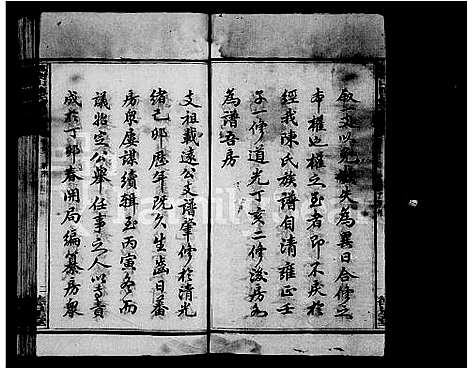 叙一支以免散失為異日合修之
本權也權之至者即不戾於
經我陳氏族譜自清雍正壬
子一修道光丁亥二修後房各
為譜吾房
支祖載遠公支譜肇修於清光
緒己卯歷年既久生齒日蕃
房衆屢謀續輯至丙寅冬而
議始定公舉任事之人以專責
成於丁卯春開局編纂房衆